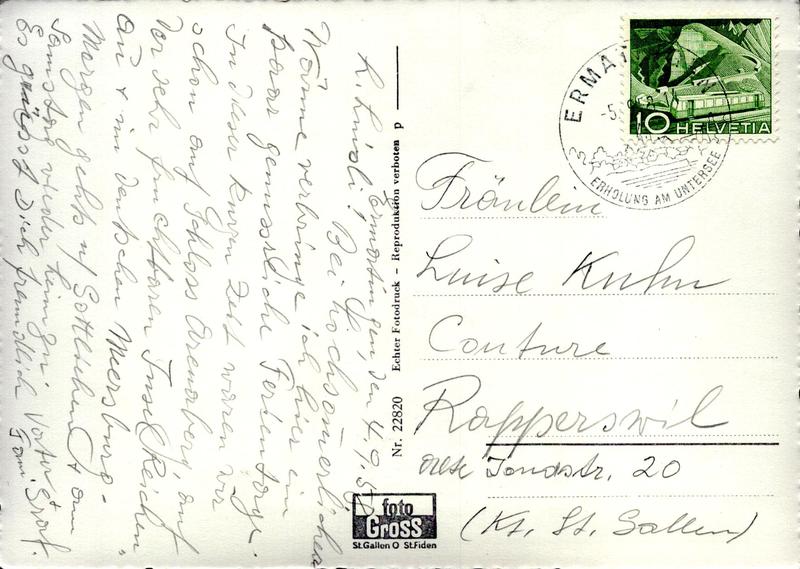 Ermatingen, den 4.9.50
L. Luisli! Bei hochsommerlicher
Wärme verbringe ich hier ein
paar genussliche Ferientage.
In dieser kurzen Zeit waren wir
schon auf Schloss Arenenberg, auf
der sehr fruchtbaren Insel Reichen-
au & im deutschen Meersburg.
Morgen gehts n/ Gottlieben & am
Samstag wieder heimzu.
Es grüsst Dich freundlich
Fam. Graf.
Nr. 22820 Echter Fotodruck – Reproduktion verboten p
foto
Gross
St.Gallen O St.Fiden
ERMATINGEN
-5.
ERHOLUNG AM UNTERSEE
10 HELVETIA
Fräulein
Luise Kuhn
Couture
Rapperswil
Jonastr. 20
(Kt. St. Gallen)